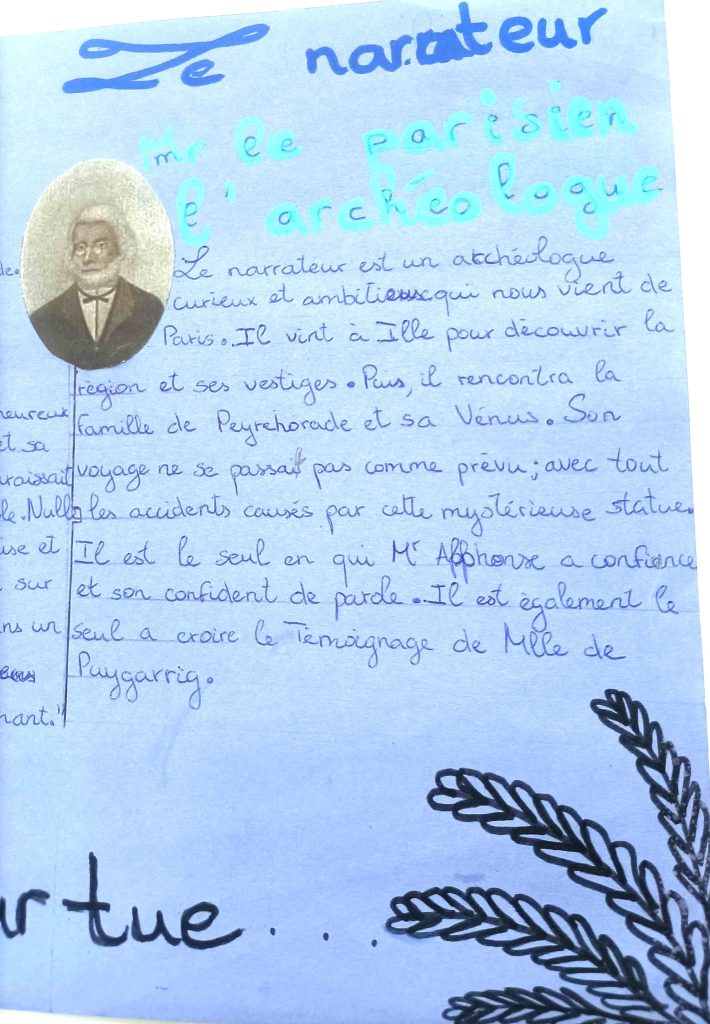 Le narrateur
Mr le parisien
l'archéologue
Le narrateur est un archéologue
curieux et ambitieux qui nous vient de
Paris. Il vint à Ille pour découvrir la
région et ses vestiges. Puis, il rencontra la
famille de Peyrehorade et sa Vénus. Son
voyage ne se passa pas comme prévu ; avec tout
les accidents causés par cette mystérieuse statue.
Il est le seul en qui Mr Alphonse a confience
et son confident de parole. Il est également le
seul a croire le Témoignage de Mlle de
Puygarrig.
de.
heureux
et sa
araissait
le. Nulle
ise et
sur
ns un
nant."
ur tue...